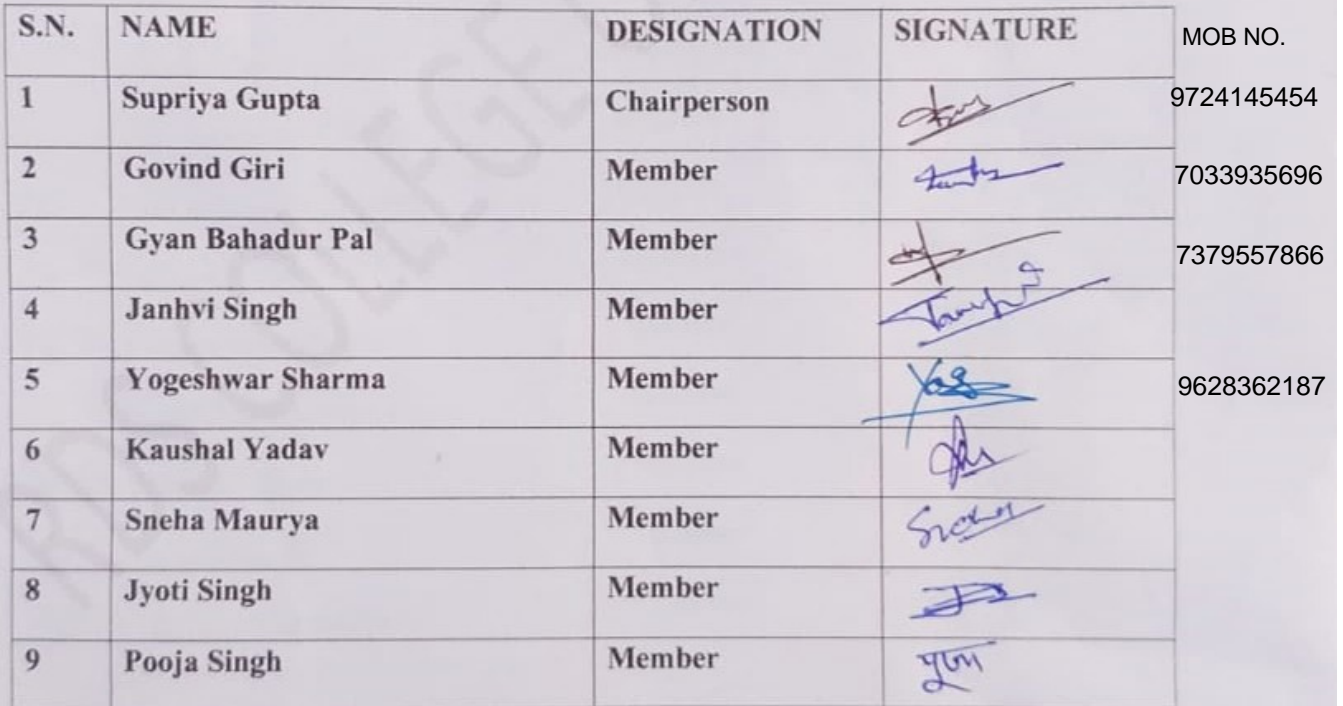 S.N. NAME DESIGNATION SIGNATURE MOB NO.
1 Supriya Gupta Chairperson 9724145454
2 Govind Giri Member 7033935696
3 Gyan Bahadur Pal Member 7379557866
4 Janhvi Singh Member
5 Yogeshwar Sharma Member 9628362187
6 Kaushal Yadav Member
7 Sneha Maurya Member
8 Jyoti Singh Member
9 Pooja Singh Member पूजा
RDS COLLEGE